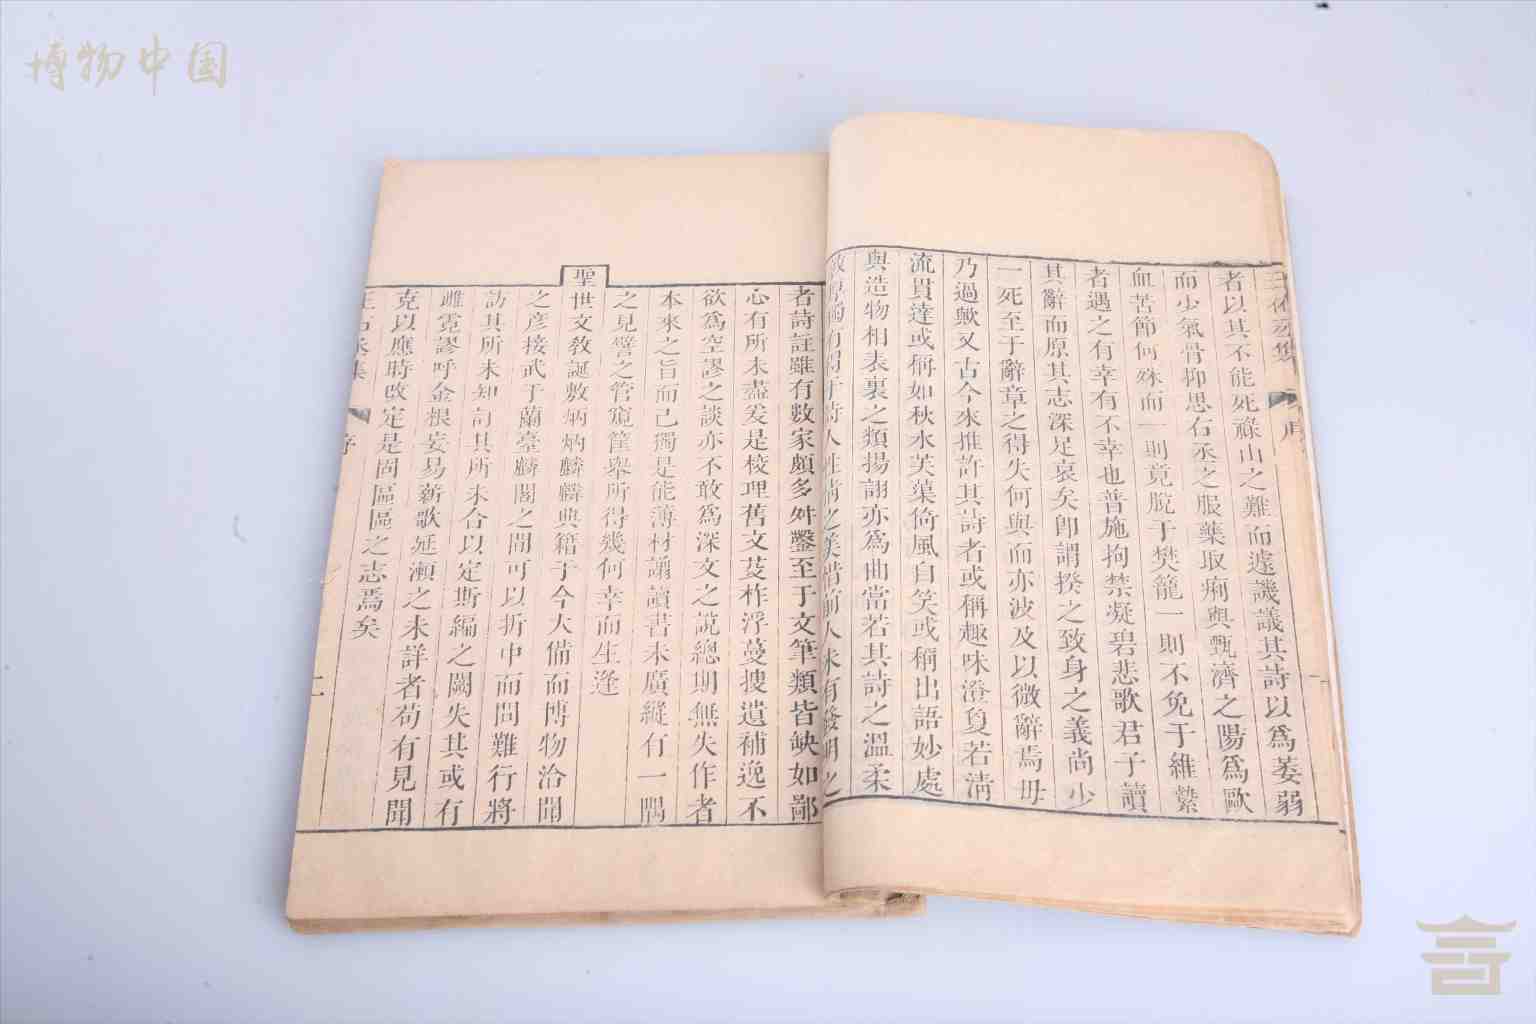 博物中国
者以其不能死祿山之難而遽譏議其詩以爲萎弱
而少氣骨抑思右丞之服藥取痢與甄濟之陽爲歐
血苦節何殊而一則竟脫于樊籠一則不免于維縶
者遇之有幸有不幸也普施拘禁凝碧悲歌君子讀
其辭而原其志深足哀矣卽謂揆之致身之義尚少
一死至于辭章之得失何與而亦波及以微辭焉毋
乃過歟又古今來推許其詩者或稱趣味澄夐若淸
流貫達或稱如秋水芙蕖倚風自笑或稱出語妙處
與造物相表裏之類揚詡亦爲曲當若其詩之溫柔
敦厚獨有得于詩人性情之美惜前人未有發明之
者詩註雖有數家頗多舛鑿至于文筆類皆缺如鄙
心有所未盡爰是校理舊文芟柞浮蔓搜遺補逸不
欲爲空謬之談亦不敢爲深文之說總期無失作者
本來之旨而已獨是能薄材譾讀書未廣縱有一隅
之見譬之管窺筐舉所得幾何幸而生逢
聖世文敎誕敷炳炳麟麟典籍于今大備而博物洽聞
之彥接武于蘭臺麟閣之間可以折中而問難行將
訪其所未知訂其所未合以定斯編之闕失其或有
雌霓謬呼金根妄易薪歌延瀨之未詳者苟有見聞
克以應時改定是固區區之志焉矣
王右丞集
序
二